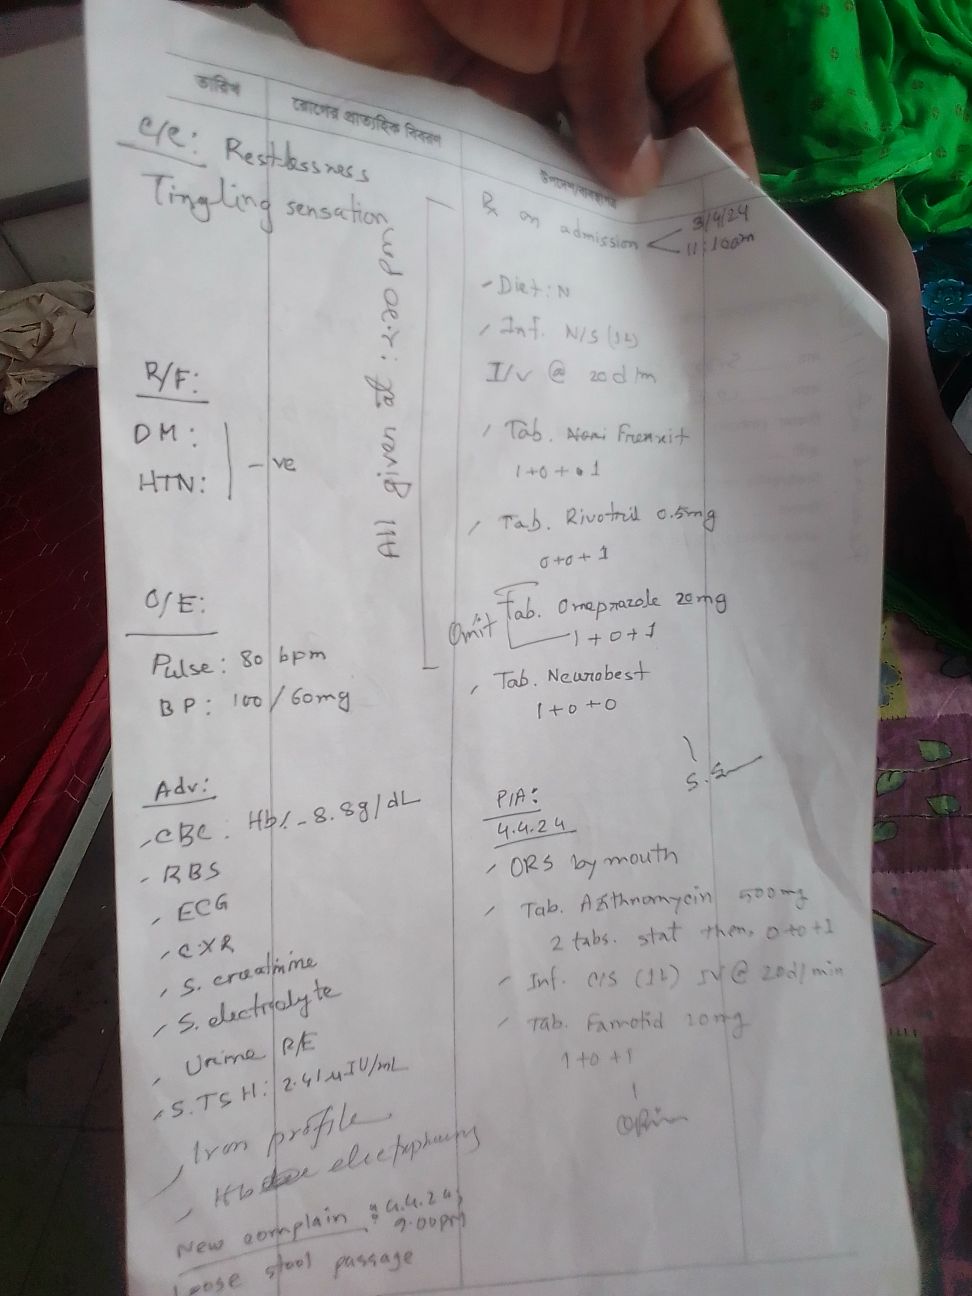 তারিখ
রোগের প্রাত্যহিক বিবরণ
C/C: Restlessness
Tingling sensation
R/F:
DM:
HTN:
- ve
O/E:
Pulse: 80 bpm
BP: 100/60mg
Adv:
CBC: Hb% - 8.8g/dL
RBS
ECG
CXR
S. creatinine
S. electrolyte
Urine R/E
S.TSH: 2.41 µIU/mL
Iron profile
Hb
New complain: 4.4.24,
9.00pm
Loose stool passage
All given at: 1:30 pm
Rx on admission 3/4/24
11:10am
Diet: N
Inf. N/S (1L)
I/V @ 20 d/m
Tab. Frenxit
1+0+1
Tab. Rivotril 0.5mg
0+0+1
Omit Tab. Omeprazole 20mg
1+0+1
Tab. Neurobest
1+0+0
S.S
P/A:
4.4.24
ORS by mouth
Tab. Azithromycin 500mg
2 tabs. stat then, 0+0+1
Inf. (1L) IV @ 20d/min
Tab. Famotid 20mg
1+0+1